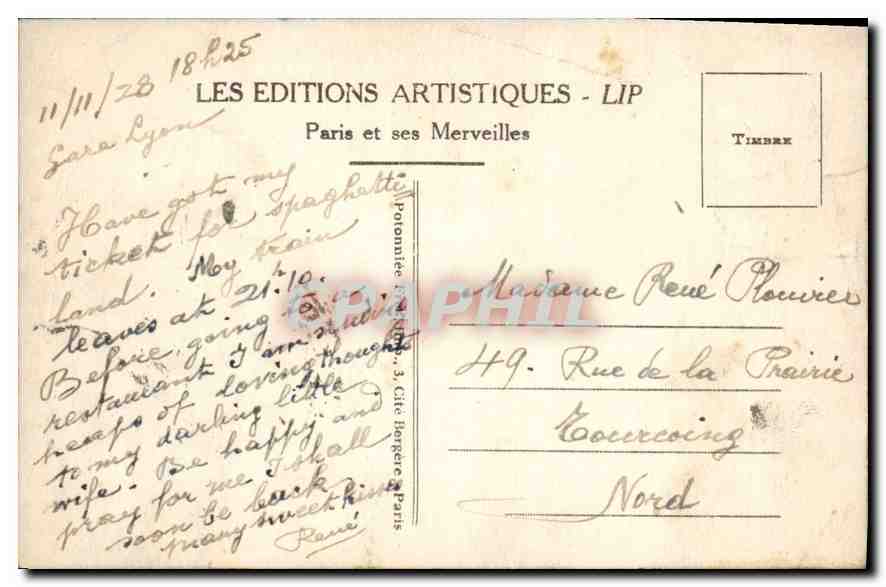 11/11/28 18h25
Gare Lyon
Have got my
ticket for spaghetti
land. My train
leaves at 21h10.
Before going to a
restaurant I am
heaps of loving thoughts
to my darling little
wife. Be happy and
pray for me I shall
soon be back
many sweet kisses
René
LES EDITIONS ARTISTIQUES - LIP
Paris et ses Merveilles
TIMBRE
Potonniée 3, Cité Bergère Paris
CPAPHIL
Madame René Plouvier
49. Rue de la Prairie
Tourcoing
Nord